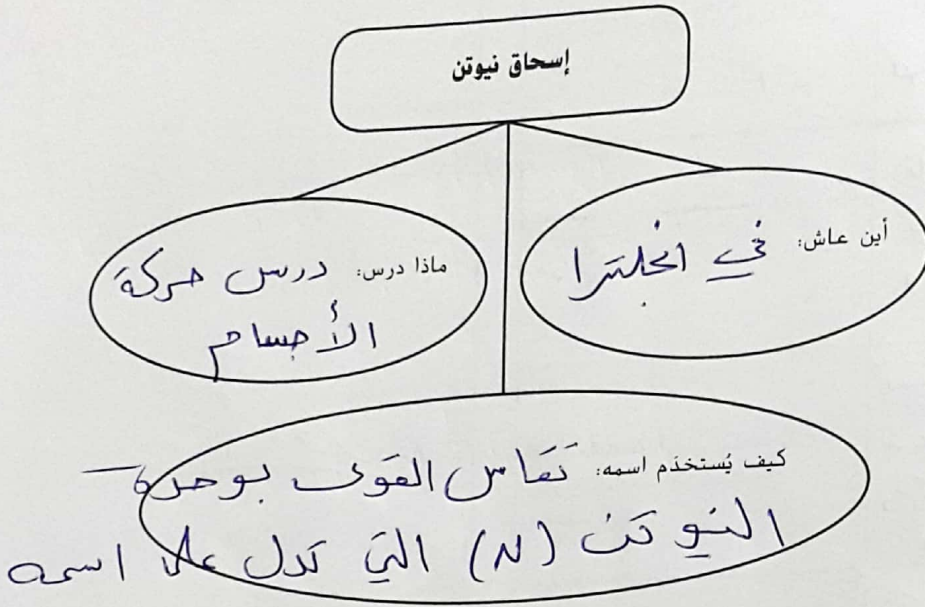 إسحاق نيوتن
أين عاش: في انجلترا
ماذا درس: درس حركة
الأجسام
كيف يُستخدَم اسمه: تقاس القوى بوحدة
النيوتن (N) التي تدل على اسمه